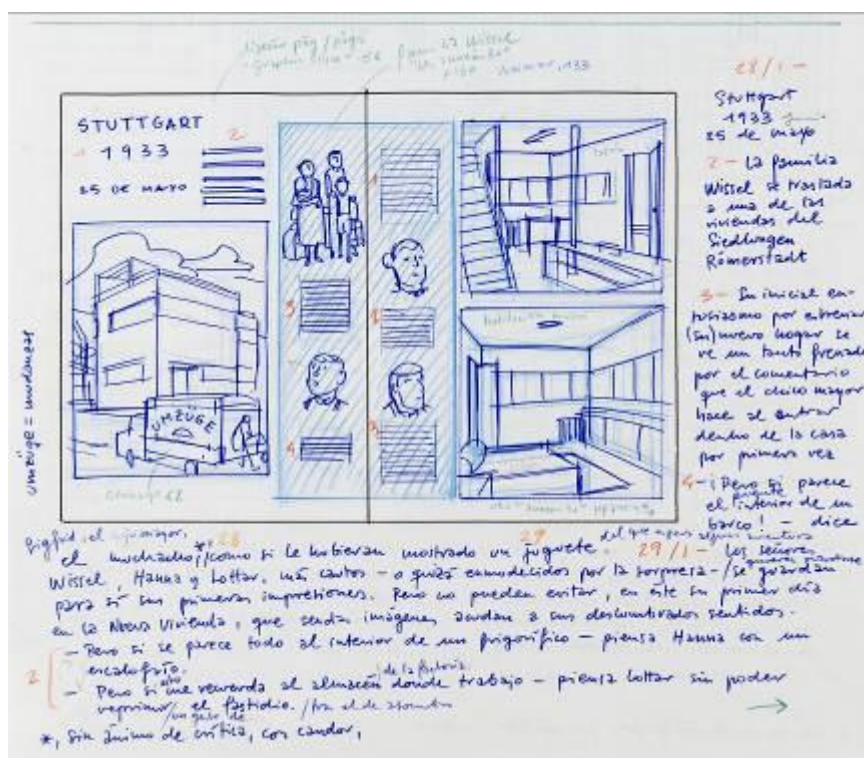 diseño pág / págs
STUTTGART
1933
25 DE MAYO
2
3
4
1
2
3
UMZÜGE
umzüge = mudanzas
28/1 –
Stuttgart
1933
25 de mayo
2 – La familia
Wissel se traslada
a una de las
viviendas del
Siedlungen
Römerstadt
3 – Su inicial en-
tusiasmo por estrenar
(su) nuevo hogar se
ve un tanto frenado
por el comentario
que el chico mayor
hace al entrar
dentro de la casa
por primera vez
4 – ¡Pero si parece
el interior de un
barco! – dice
28
29
el muchacho,* como si le hubieran mostrado un juguete. 29/1 – Los señores
Wissel, Hanna y Lottar, más cautos – o quizá enmudecidos por la sorpresa – / se guardan
para sí sus primeras impresiones. Pero no pueden evitar, en este su primer día
en la Nueva Vivienda, que sendas imágenes acudan a sus deslumbrados sentidos.
– Pero si se parece todo al interior de un frigorífico – piensa Hanna con un
escalofrío.
2
de la factoría
– Pero si me recuerda al almacén donde trabajo – piensa Lottar sin poder
reprimir / el fastidio.
*, sin ánimo de crítica, con candor,